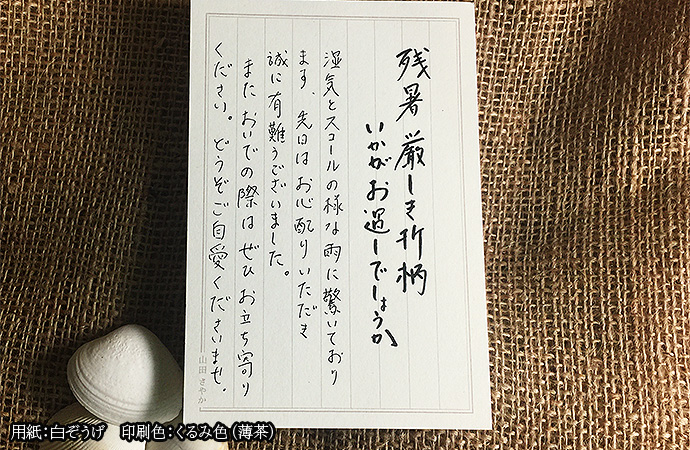 残暑厳しき折柄
いかがお過しでしょうか
湿気とスコールの様な雨に驚いており
ます、先日はお心配りいただき
誠に有難うございました。
また おいでの際は ぜひ お立ち寄り
ください。どうぞご自愛くださいませ。
山田 さやか
用紙：白ぞうげ　印刷色：くるみ色（薄茶）